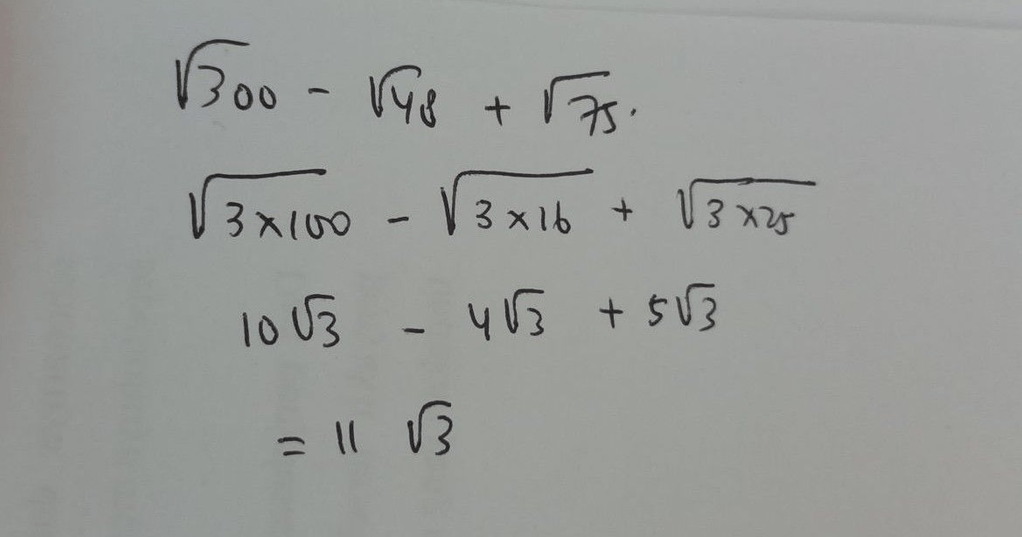 √300 - √48 + √75.
√3×100 - √3×16 + √3×25
10√3 - 4√3 + 5√3
= 11 √3